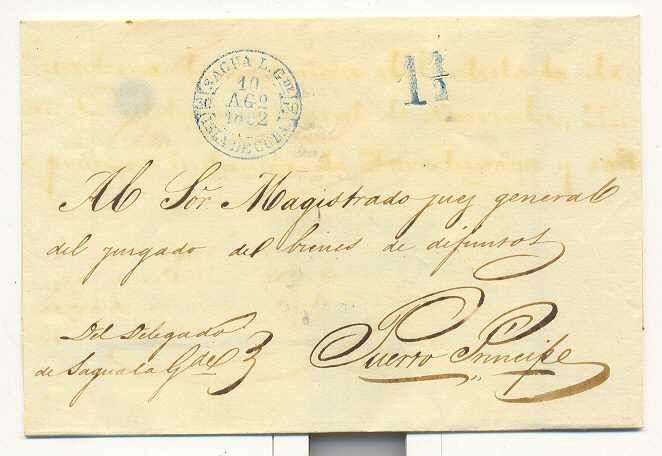 SAGUA L. GDE
10
AGO
1852
ISLA DE CUBA
1½
Al Sor. Magistrado juez general
del juzgado del bienes de difuntos
Del Delegado
de Sagua la Gde
Puerto Principe